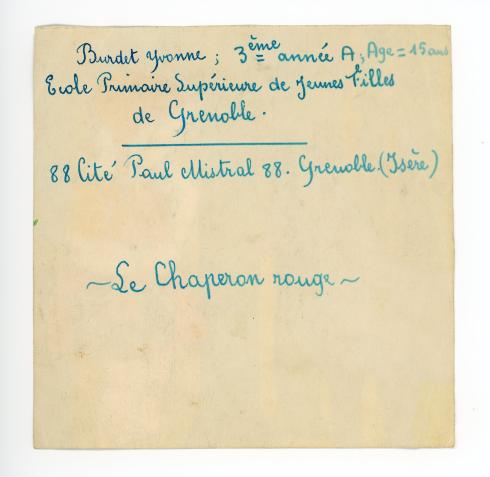 Burdet Yvonne ; 3ème année A ; Age = 15 ans
Ecole Primaire Supérieure de Jeunes Filles
de Grenoble .
88 Cité Paul Mistral 88. Grenoble. (Isère)
~ Le Chaperon rouge ~